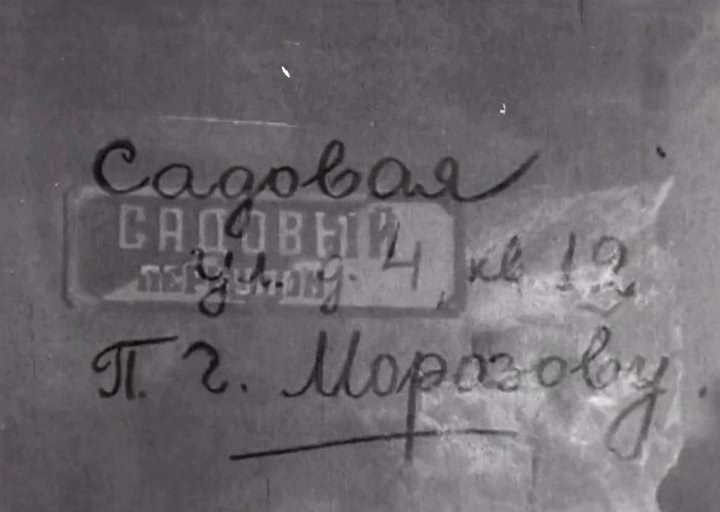 Садовая
САДОВЫЙ
ПЕРЕУЛОК
ул. д. 4, кв 12
П. Г. Морозову.